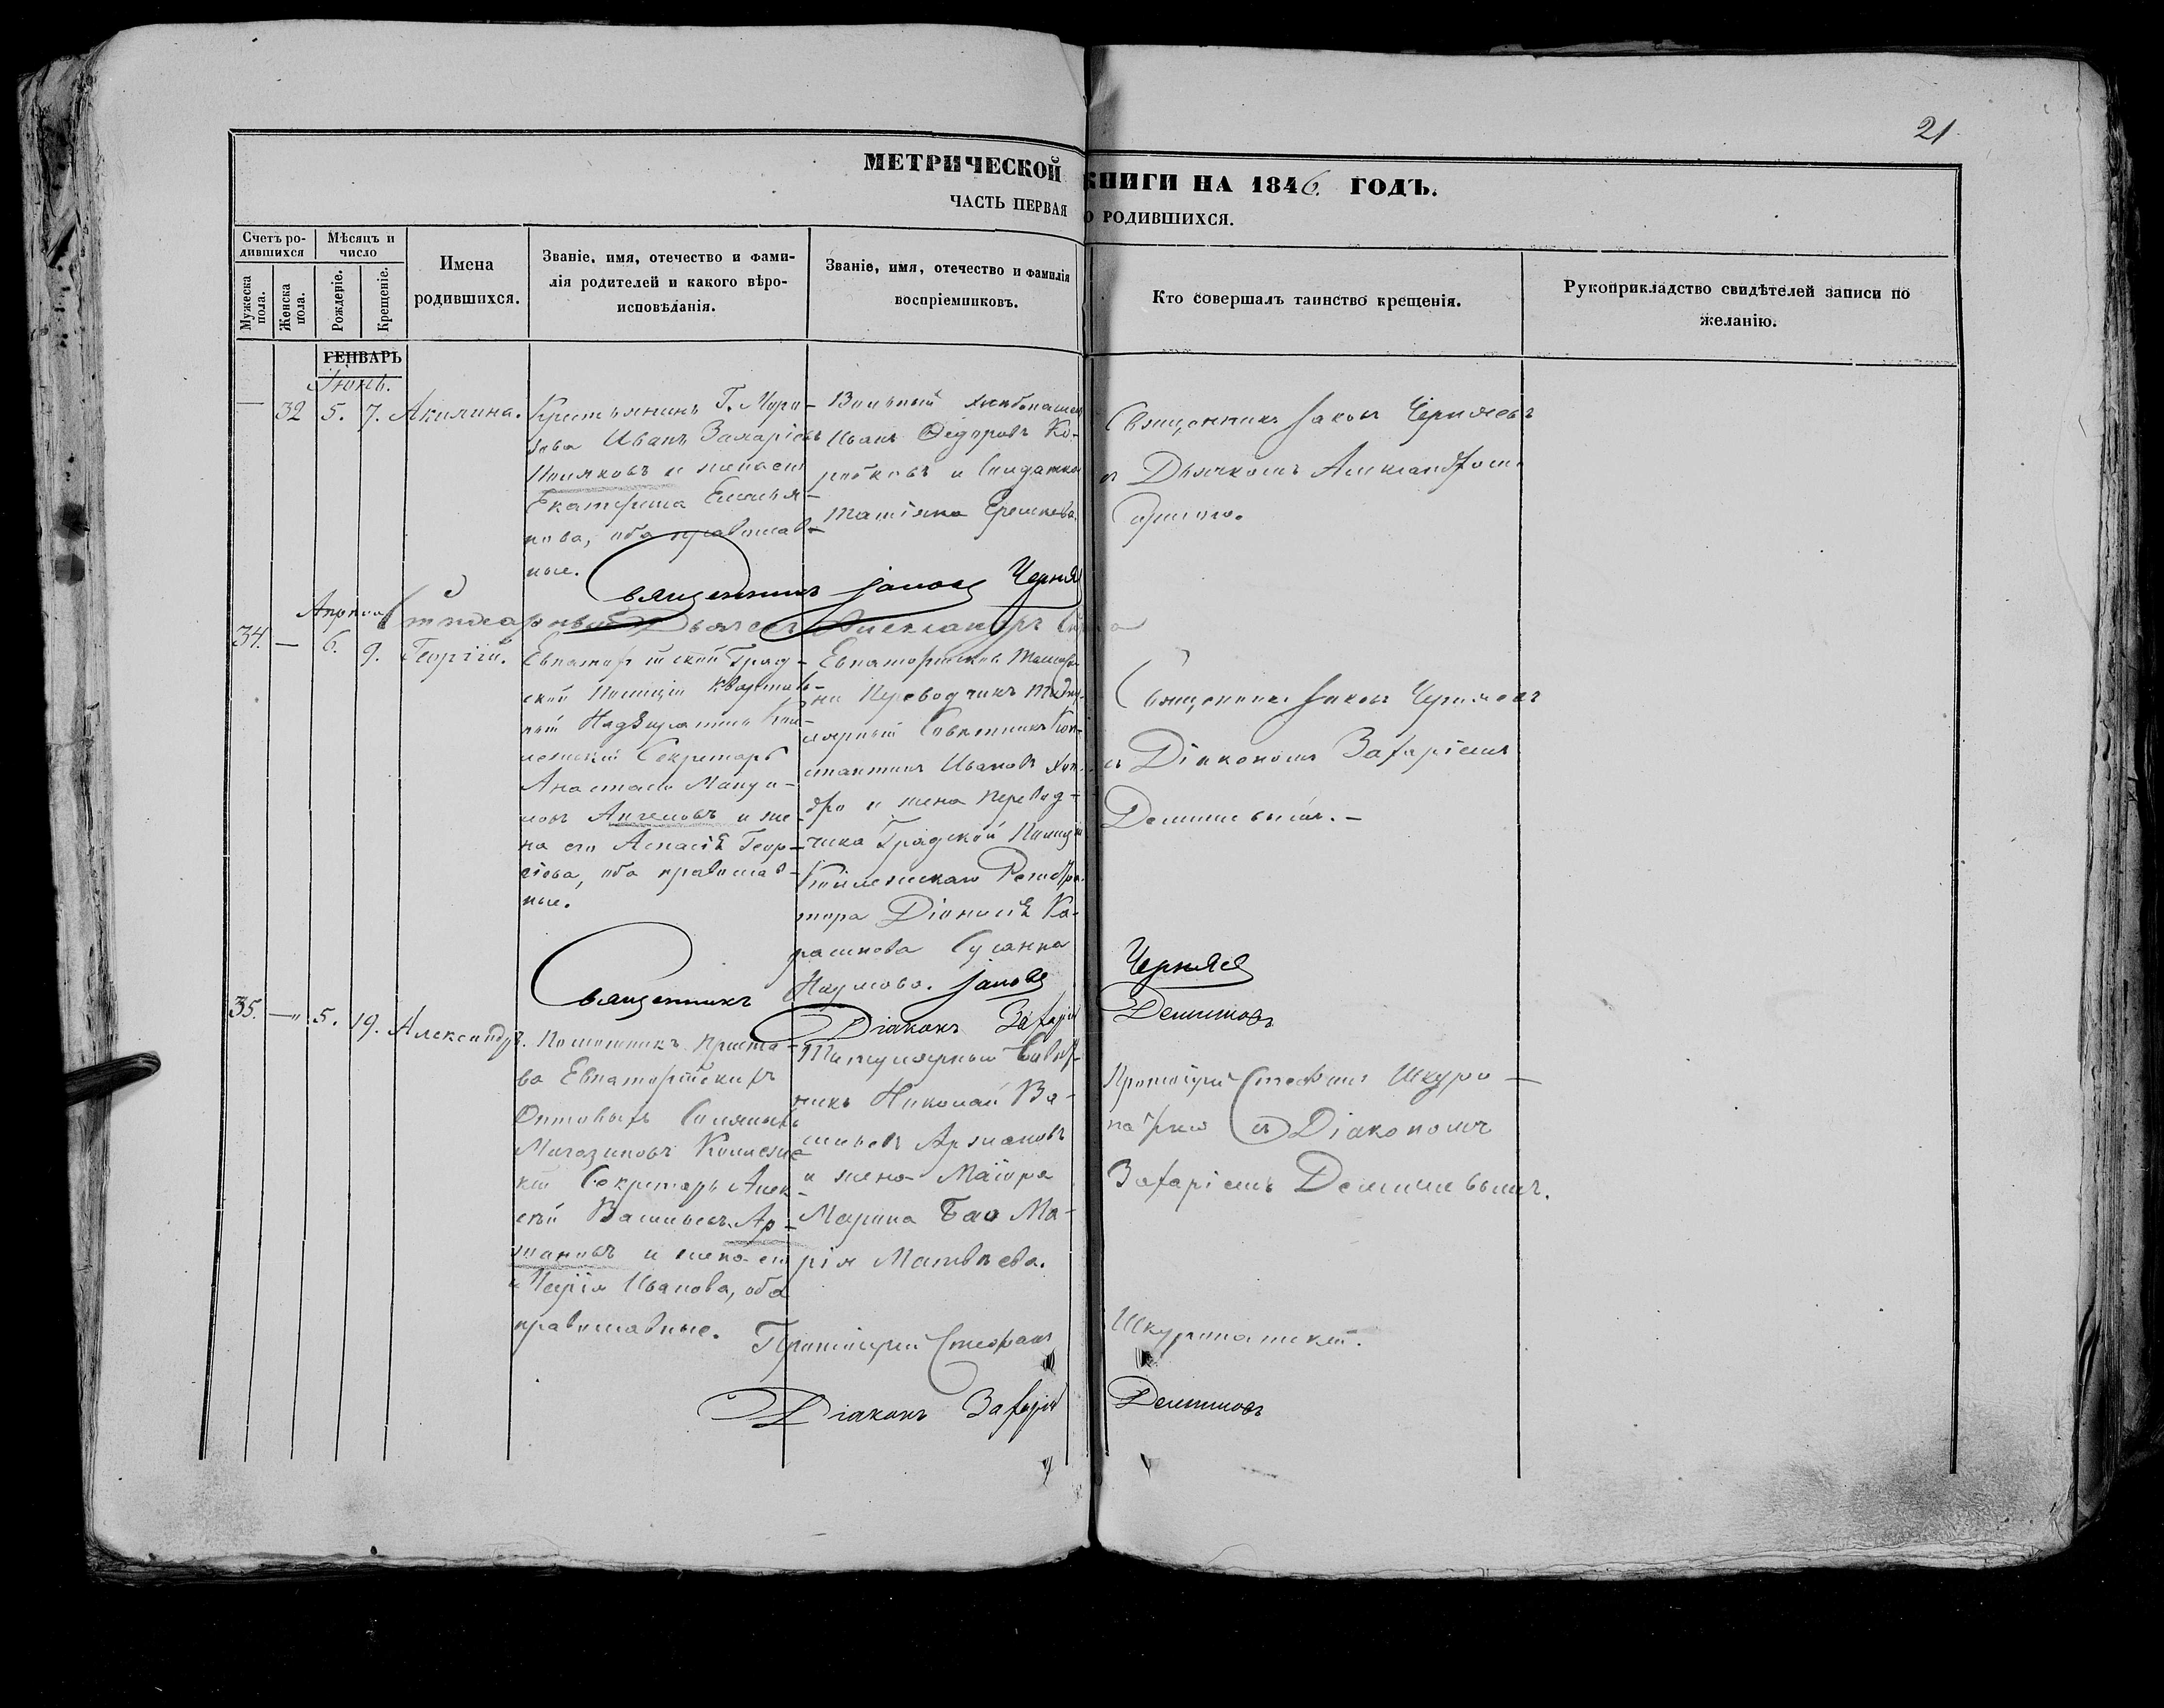 21
МЕТРИЧЕСКОЙ КНИГИ НА 1846. ГОДЪ.
ЧАСТЬ ПЕРВАЯ О РОДИВШИХСЯ.
Счетъ ро-
дившихся
Мужеска
пола.
Женска
пола.
Мѣсяцъ и
число
Рожденіе.
Крещеніе.
Имена
родившихся.
Званіе, имя, отечество и фами-
лія родителей и какого вѣро-
исповѣданія.
Званіе, имя, отечество и фамилія
воспріемниковъ.
Кто совершалъ таинство крещенія.
Рукоприкладство свидѣтелей записи по
желанію.
ГЕНВАРЬ
Іюнь.
— 32 5. 7. Акилина.
Крестьянинъ Г. Моро-
зова Иванъ Захаріевъ
Поляковъ и жена его
Екатерина Емелья-
нова, оба православ-
ные.
Вольный хлебопашец
Иванъ Федоровъ Ко-
робковъ и Солдатка
Татіяна
Священникъ Іаковъ Чернявъ
съ Дьячкомъ Александромъ
Священникъ Іаковъ Черня
Дьячекъ Александръ
34. — 6. 9. Георгій.
Евпаторійской Град-
ской Полиціи Кварталь-
ный Надзиратель Кол-
лежскій Секретарь
Анастасъ Мануи-
ловъ Ангеловъ и же-
на его Аспасія Геор-
гіева, оба православ-
ные.
Евпаторійской
ни Переводчикъ Титу-
лярный Совѣтникъ Кон-
стантинъ Ивановъ
и жена перевод-
чика Градской Полиціи
Коллежскаго Регистра-
тора Діонисія Ка-
рашкова Сусанна
Наумова.
Священникъ Іаковъ Чернявъ
съ Діакономъ Захаріемъ
Демишевымъ. —
Священникъ Іаковъ Чернявъ
Діаконъ Захарій Демишовъ
35. — 5. 19. Александръ.
Помошникъ Приста-
ва Евпаторійскихъ
Оптовыхъ Соляныхъ
Магазиновъ Коллежс-
кій Секретарь Алек-
сѣй Васильевъ Ар-
мановъ и жена его
Марія Иванова, оба
православные.
Титулярный Совѣт-
никъ Николай Ва-
сильевъ Армановъ
и жена Маіора
Марина Бао Ма-
рія Матвѣева.
Протоіерей Стефанъ Шкуро-
съ Діакономъ
Захаріемъ Демишевымъ.
Протоіерей Стефанъ
Діаконъ Захарій Демишовъ